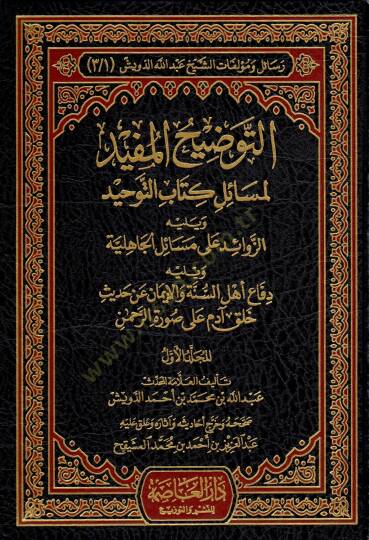 رسائل ومؤلفات الشيخ عبد الله الدويش (٣/١)
التوضيح المفيد
لمسائل كتاب التوحيد
ويليه
الزوائد على مسائل الجاهلية
ويليه
دفاع أهل السنة والإيمان عن حديث
خلق آدم على صورة الرحمن
المجلد الأول
تأليف العلامة المحدث
عبد الله بن محمد بن أحمد الدويش
صححه وخرج أحاديثه وآثاره وعلق عليه
عبد العزيز بن أحمد بن محمد المشيقح
دار العاصمة
للنشر والتوزيع